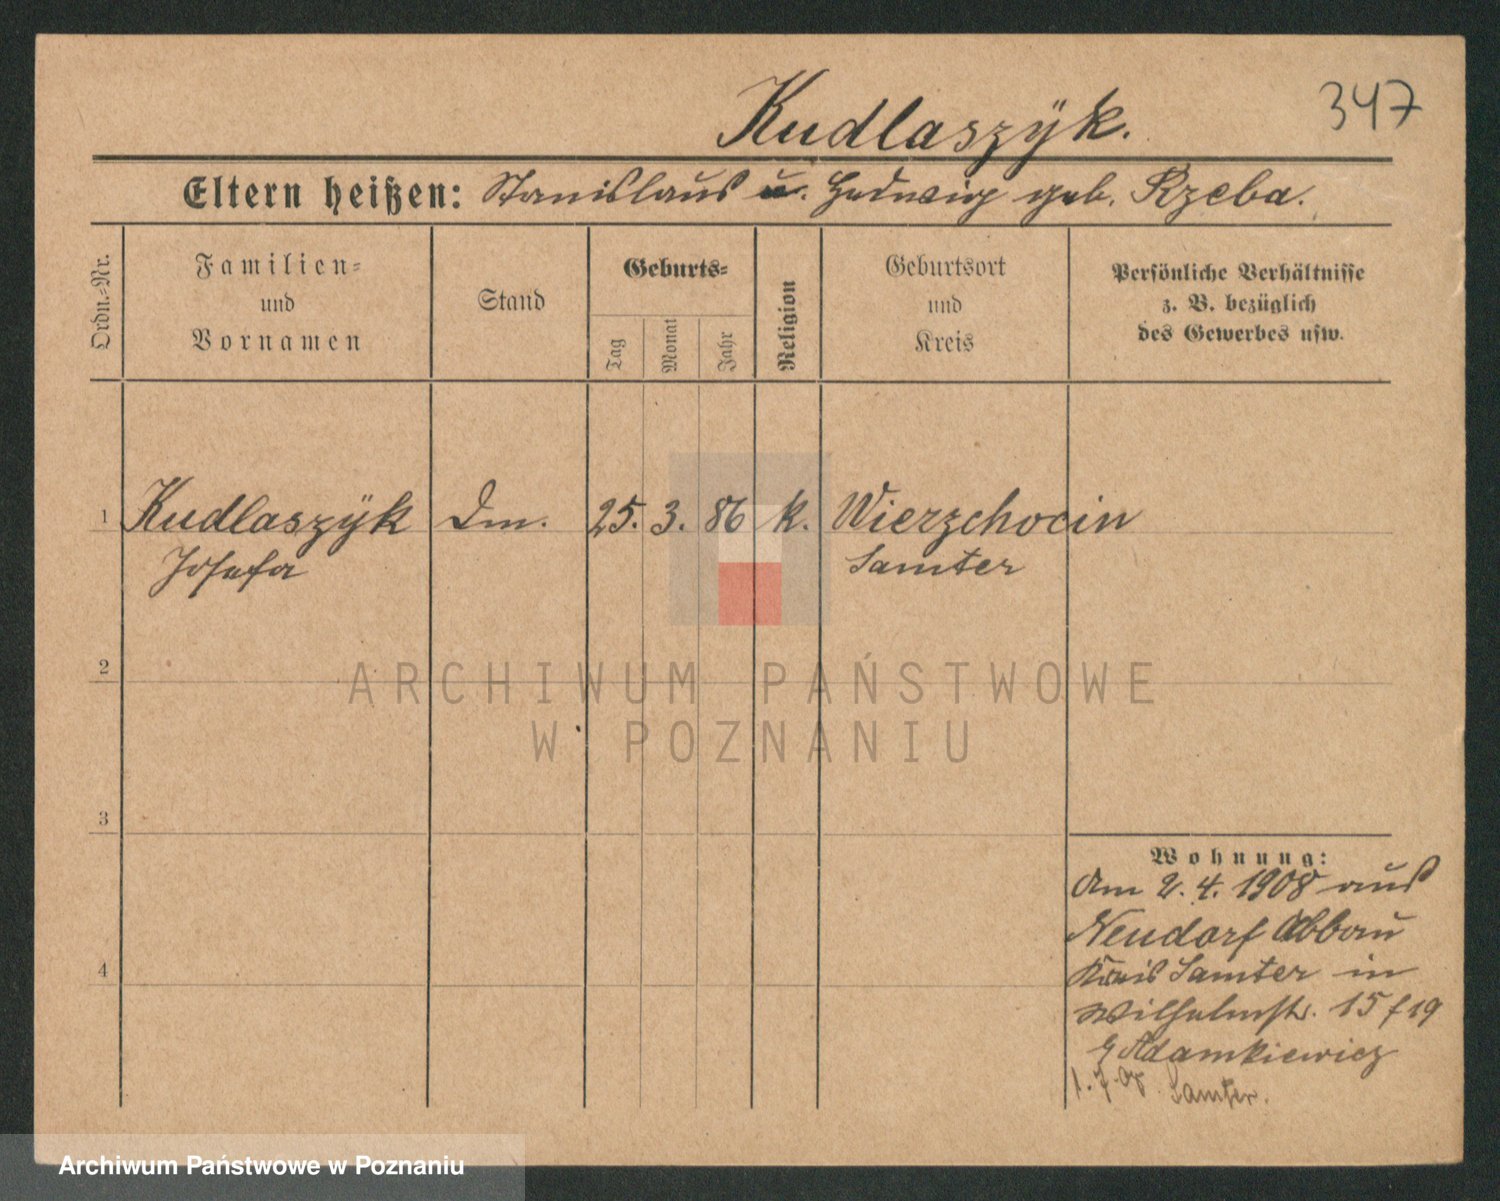 347
Kudlaszÿk.
Eltern heißen: Stanislaus u. Hedwig geb. Rzeba.
Ordn.-Nr.
Familien-
und
Vornamen
Stand
Geburts-
Tag
Monat
Jahr
Religion
Geburtsort
und
Kreis
Persönliche Verhältnisse
z. B. bezüglich
des Gewerbes usw.
1 Kudlaszÿk Dm. 25. 3. 86 k. Wierzchocin
Josefa Samter
2
ARCHIWUM PAŃSTWOWE
W POZNANIU
3
4
Wohnung:
Am 2. 4. 1908 aus
Neudorf Abbau
Kreis Samter in
Wilhelmstr. 15 / 19
Adamkiewicz
1. 7. 08 Samter.
Archiwum Państwowe w Poznaniu